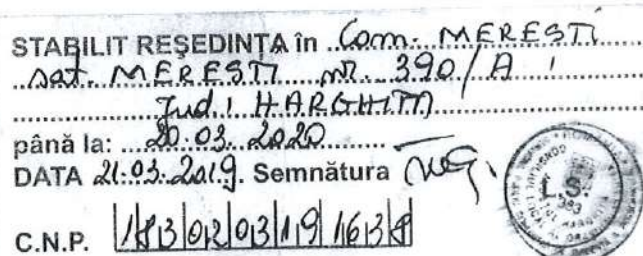 STABILIT REŞEDINŢA în Com. MERESTI
sat. MERESTI nr. 390/A
Jud. HARGHITA
până la: 20.03.2020
DATA 21.03.2019. Semnătura
C.N.P.
L.S.